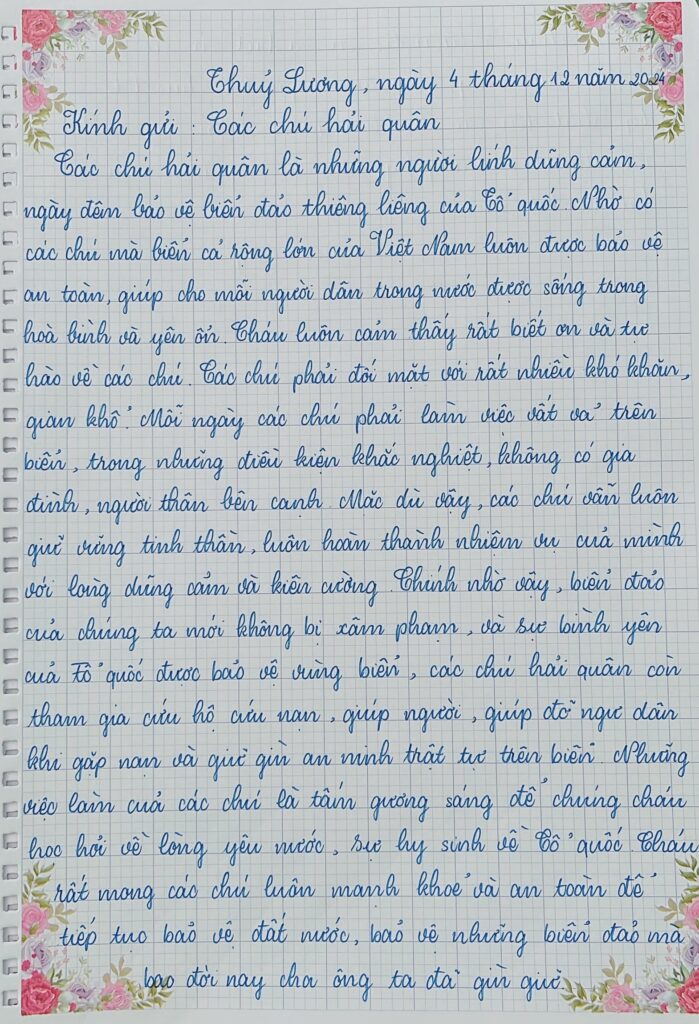 Thuỷ Lương, ngày 4 tháng 12 năm 2024
Kính gửi : Các chú hải quân
Các chú hải quân là những người lính dũng cảm,
ngày đêm bảo vệ biển đảo thiêng liêng của Tổ quốc. Nhờ có
các chú mà biển cả rộng lớn của Việt Nam luôn được bảo vệ
an toàn, giúp cho mỗi người dân trong nước được sống trong
hoà bình và yên ổn. Cháu luôn cảm thấy rất biết ơn và tự
hào về các chú. Các chú phải đối mặt với rất nhiều khó khăn,
gian khổ. Mỗi ngày các chú phải làm việc vất vả trên
biển, trong những điều kiện khắc nghiệt, không có gia
đình, người thân bên cạnh. Mặc dù vậy, các chú vẫn luôn
giữ vững tinh thần, luôn hoàn thành nhiệm vụ của mình
với lòng dũng cảm và kiên cường. Chính nhờ vậy, biển đảo
của chúng ta mới không bị xâm phạm, và sự bình yên
của Tổ quốc được bảo vệ vùng biển, các chú hải quân còn
tham gia cứu hộ cứu nạn, giúp người, giúp đỡ ngư dân
khi gặp nạn và giữ gìn an ninh trật tự trên biển. Những
việc làm của các chú là tấm gương sáng để chúng cháu
học hỏi về lòng yêu nước, sự hy sinh về Tổ quốc. Cháu
rất mong các chú luôn mạnh khoẻ và an toàn để
tiếp tục bảo vệ đất nước, bảo vệ những biển đảo mà
bao đời nay cha ông ta đã gìn giữ.